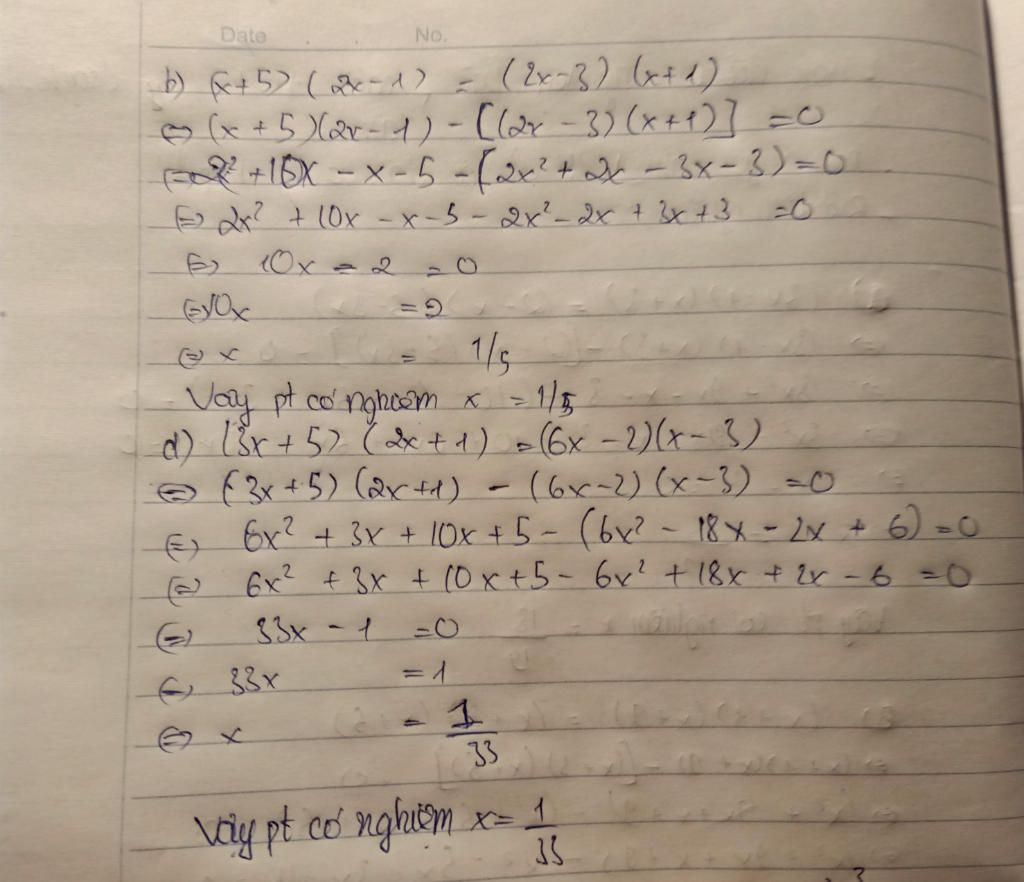 Date . . No.
b) (x+5) (2x-1) = (2x-3) (x+1)
⇔ (x+5)(2x-1) - [(2x-3)(x+1)] = 0
⇔ 2x² + 10x - x - 5 - [2x² + 2x - 3x - 3) = 0
⇔ 2x² + 10x - x - 5 - 2x² - 2x + 3x + 3 = 0
⇔ 10x - 2 = 0
⇔ 10x = 2
⇔ x = 1/5
Vậy pt có nghiệm x = 1/5
d) (3x+5) (2x+1) = (6x-2)(x-3)
⇔ (3x+5) (2x+1) - (6x-2) (x-3) = 0
⇔ 6x² + 3x + 10x + 5 - (6x² - 18x - 2x + 6) = 0
⇔ 6x² + 3x + 10x + 5 - 6x² + 18x + 2x - 6 = 0
⇔ 33x - 1 = 0
⇔ 33x = 1
⇔ x = 1/33
Vậy pt có nghiệm x = 1/33